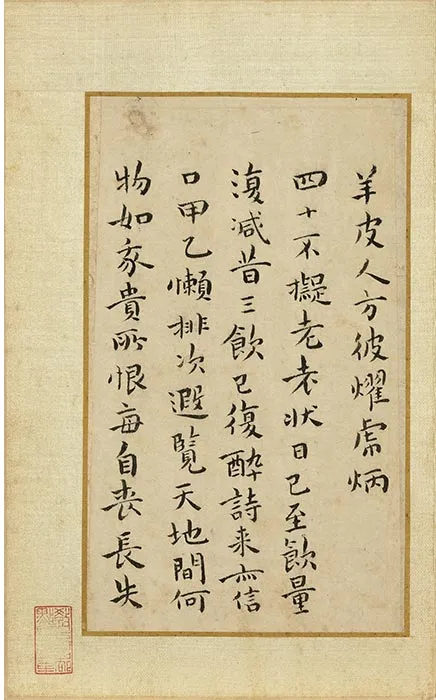 羊皮人方彼燿虎炳
四十不擬老衰状日已至飲量
復减昔三飲已復醉詩来亦信
口甲乙懶排次遐覧天地間何
物如我貴所恨每自丧長失